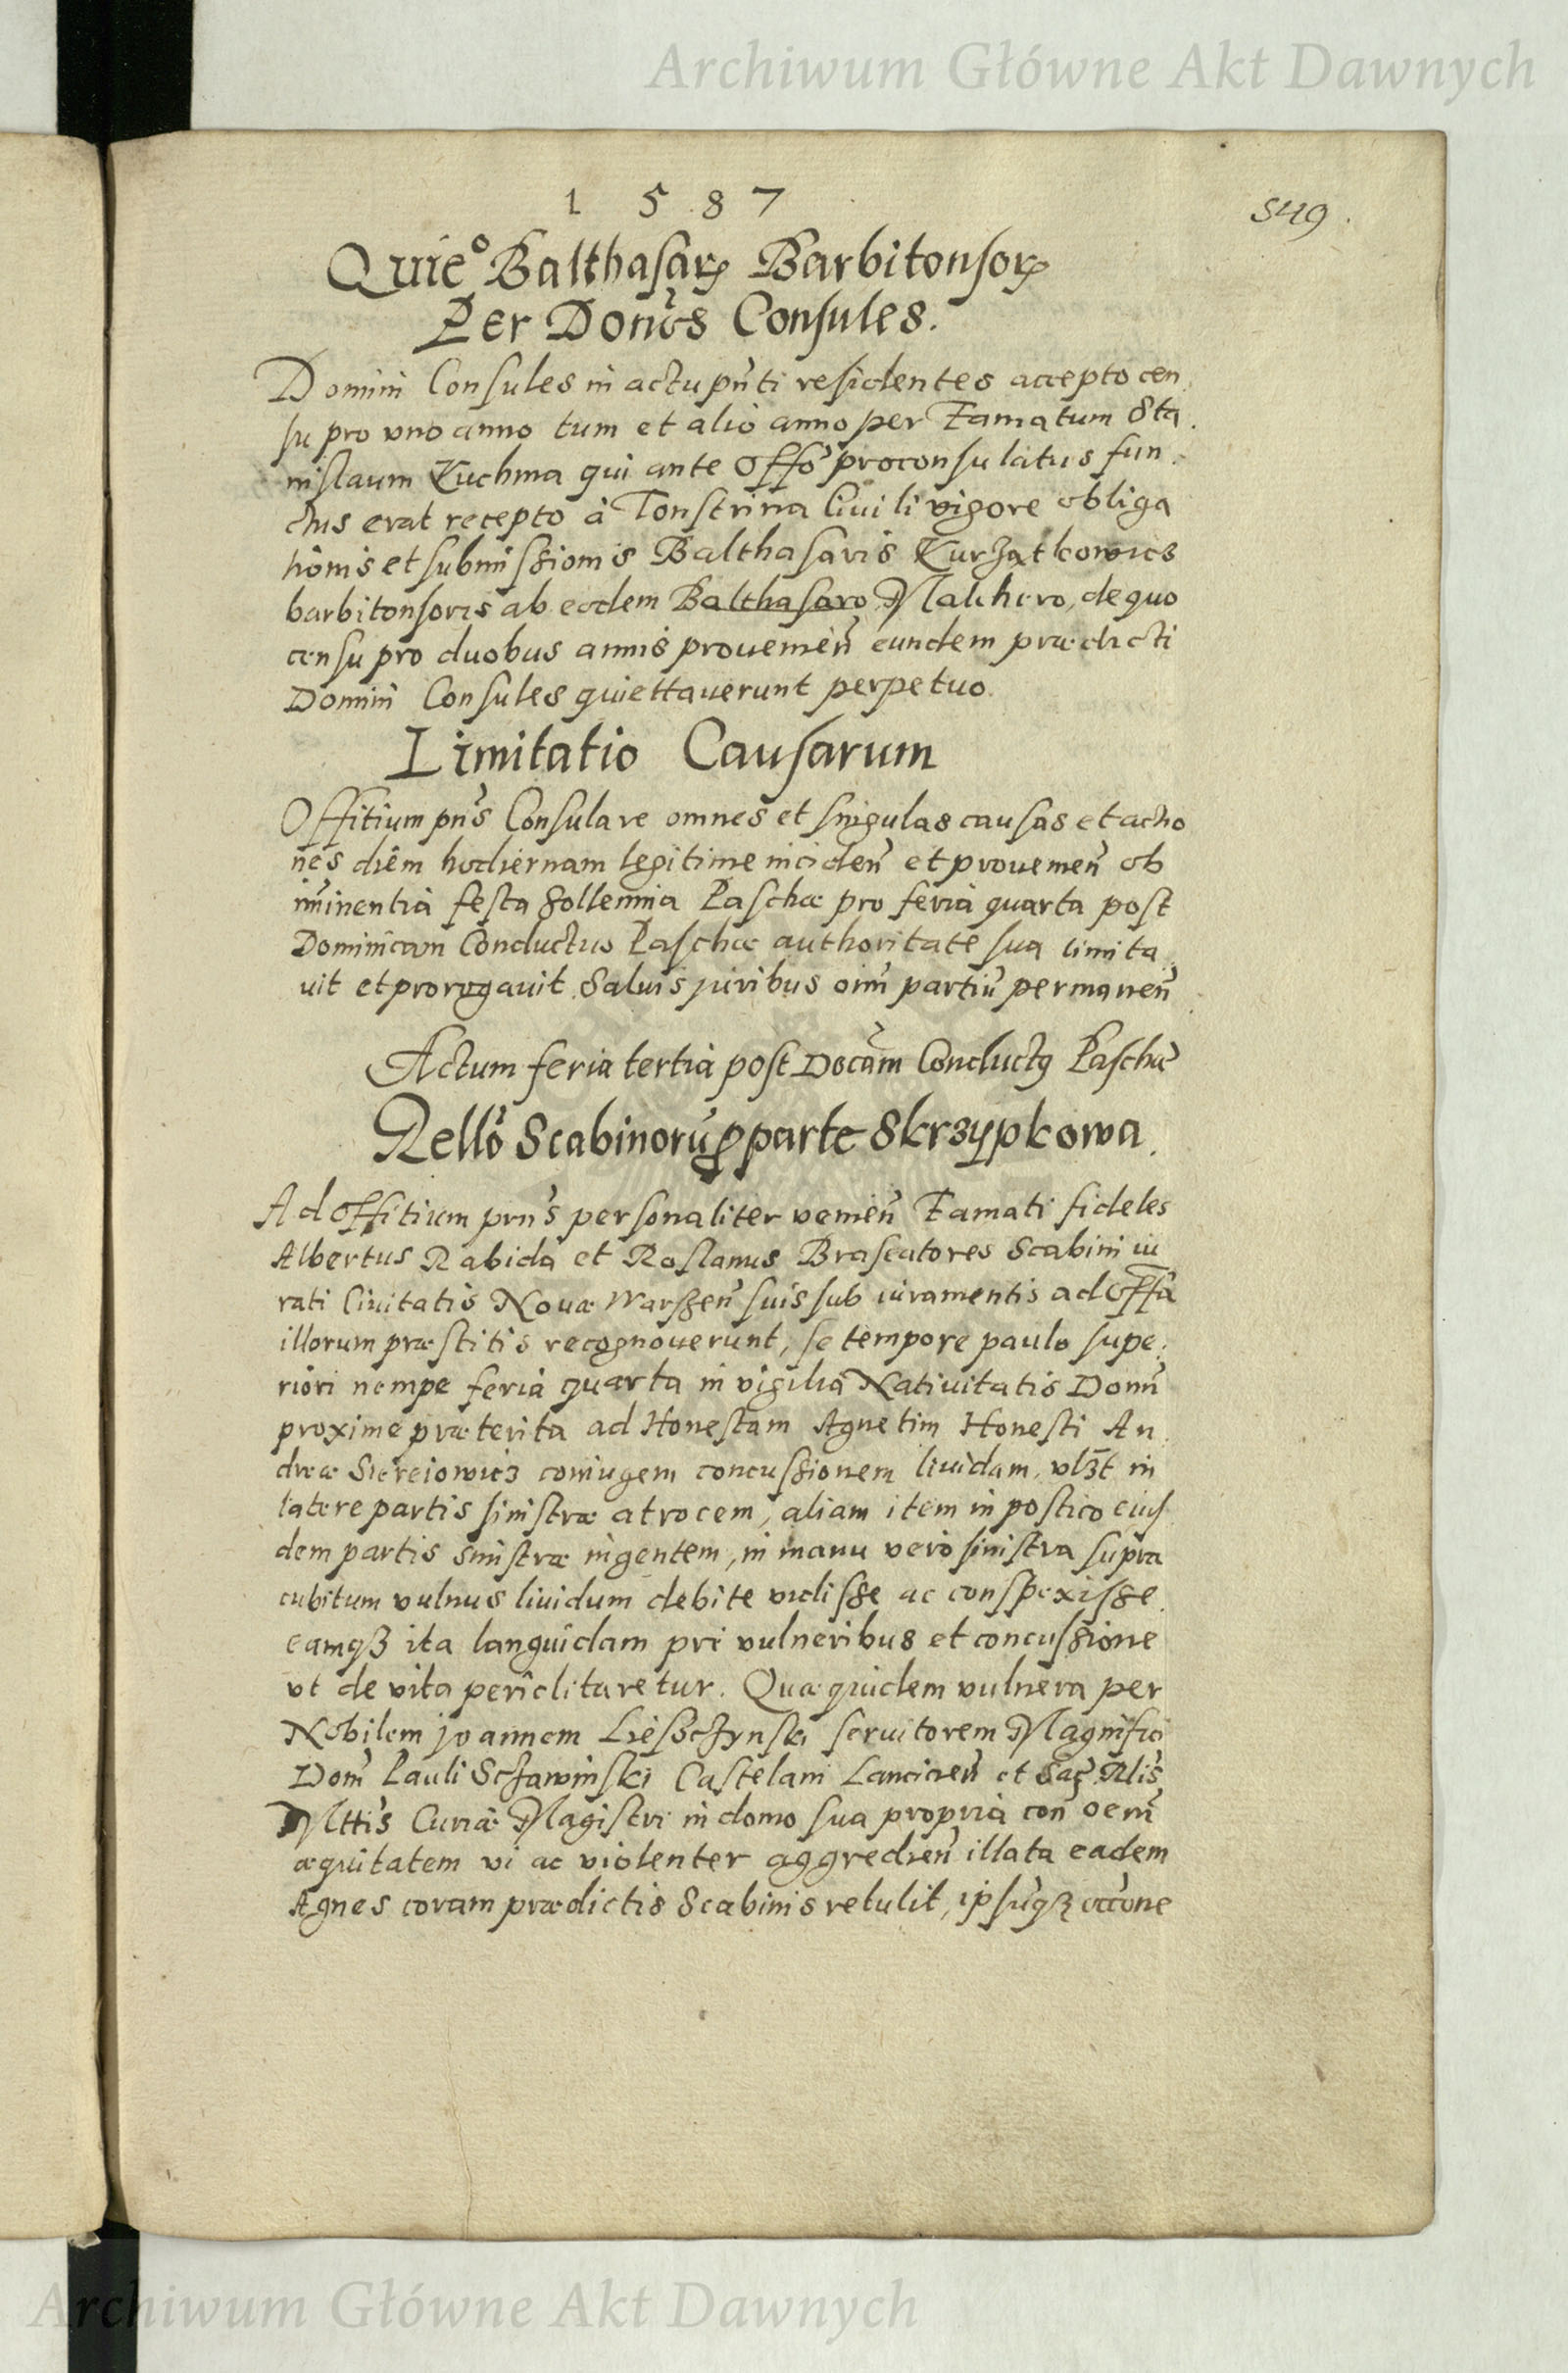 Archiwum Główne Akt Dawnych
1 5 8 7
549.
Quie° Balthasar Barbitonsor
Per Donōs Consules.
Domini Consules in actu pn̄ti residentes accepto cen
su pro uno anno tum et alio anno per Famatum Sta
nislaum Kuchma qui ante offō proconsulatus fun
ctus erat recepto à Tonstrina Ciuili vigore obliga
tionis et submissionis Balthasaris
barbitonsoris ab eodem Balthasaro Malchero, de quo
censu pro duobus annis prouenien̄ eundem prædicti
Domini Consules quiettauerunt perpetuo.
Limitatio Causarum
Offitium pn̄s Consulare omnes et singulas causas et actio
nes diem hodiernam legitime inciden̄ et prouenien̄ ob
im̄inentia festa sollemnia Paschæ pro feria quarta post
Dominicam Conductus Paschæ authoritate sua limita
uit et prorogauit saluis juribus oīm partiū permanen̄
Actum feria tertia post Docam̄ Conductꝰ Paschæ
Rellō Scabinorū ꝓ parte Skrzypkowa.
Ad offitium pn̄s personaliter venien̄ Famati fideles
Albertus Rabida et Roslanus Braseatores Scabini iu
rati Ciuitatis Nouæ Warszen̄ suis sub iuramentis ad offā
illorum præstitis recognouerunt, se tempore paulo supe
riori nempe feria quarta in vigilia Natiuitatis Domī
proxime præterita ad Honestam Agnetim Honesti An
dreæ coniugem concussionem liuidam, vlꝫt in
latere partis sinistræ atrocem, aliam item in postico eius
dem partis sinistræ ingentem, in manu vero sinistra supra
cubitum vulnus liuidum debite vidisse ac conspexisse
eamqꝫ ita languidam præ vulneribus et concussione
vt de vita periclitaretur. Quæ quidem vulnera per
Nobilem joannem seruitorem Magnifici
Domī Pauli Sczawinski Castelani Lancicien̄ et Sac̄ Rlīs
Mttīs Curiæ Magistri in domo sua propria con̄ oem̄
æquitatem vi ac violenter aggredien̄ illata eadem
Agnes coram prædictis Scabinis retulit, ipsūqꝫ occōne
Archiwum Główne Akt Dawnych